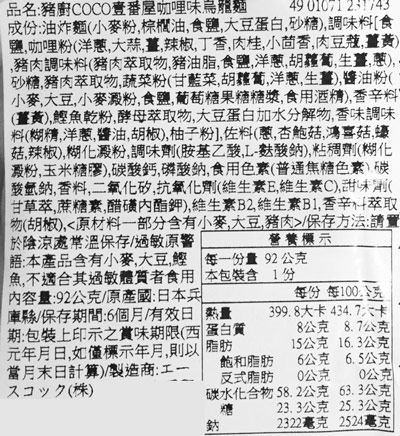 品名:豬廚COCO壹番屋咖哩味烏龍麵 49 01071 231743
成份:油炸麵(小麥粉,棕櫚油,食鹽,大豆蛋白,砂糖),調味料[食
鹽,咖哩粉(洋蔥,大蒜,薑,辣椒,丁香,肉桂,小茴香,肉豆蔻,薑黃)
,豬肉調味料(豬肉萃取物,豬油脂,食鹽,胡蘿蔔,洋蔥,生薑),
砂糖,豬肉萃取物,蔬菜粉(甘藍菜,胡蘿蔔,洋蔥,生薑)醬油粉(
小麥,大豆,小麥澱粉,食鹽,葡萄糖果糖糖漿,食用酒精),香辛料
(薑黃),鰹魚乾粉,酵母萃取物,大豆蛋白加水分解物,香味調味
料(糊精,洋蔥,醬油,胡椒),柚子粉],佐料(蔥,杏鮑菇,鴻喜菇,蠔
菇,辣椒),糊化澱粉,調味劑(胺基乙酸,L-麩酸鈉),粘稠劑(糊化
澱粉,玉米糖膠),碳酸鈣,磷酸鈉,食用色素(普通焦糖色素)碳
酸氫鈉,香料,二氧化矽,抗氧化劑(維生素E,維生素C),甜味劑(
甘草萃,蔗糖素,醋磺內酯鉀),維生素B2,維生素B1,香辛料萃取
物(胡椒),<原材料一部分含有小麥,大豆,豬肉>/保存方法:請置
於陰涼處常溫保存/過敏原警
語:本產品含有小麥,大豆,鰹
魚,不適合其過敏體質者食用
內容量:92公克/原產國:日本兵
庫縣/保存期間:6個月/有效日
期:包裝上印示之賞味期限(西
元年月日,如僅標示年月,則以
當月末日計算)/製造商:エー
スコック(株)
營養標示
每一份量 92公克
本包裝含 1份
每份 每100公克
熱量 399.8大卡 434.7大卡
蛋白質 8公克 8.7公克
脂肪 15公克 16.3公克
飽和脂肪 6公克 6.5公克
反式脂肪 0公克 0公克
碳水化合物 58.2公克 63.3公克
糖 23.3公克 25.3公克
鈉 2322毫克 2524毫克